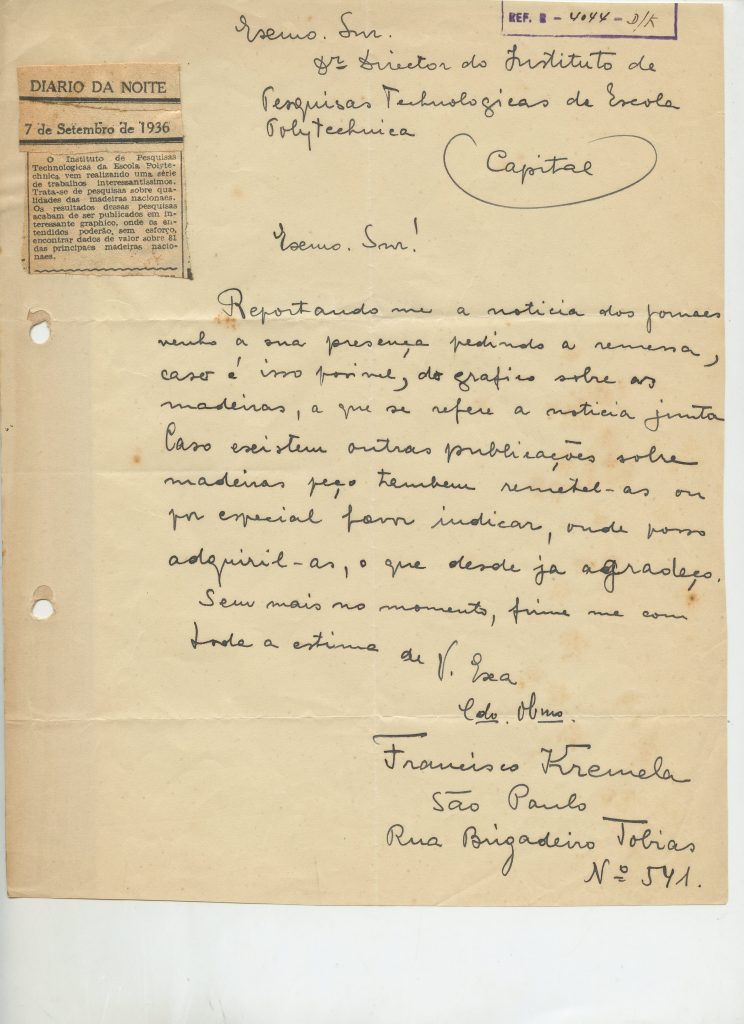 REF. B - 4044 - D/K
DIARIO DA NOITE
7 de Setembro de 1936
O Instituto de Pesquisas
Technologicas da Escola Polyte-
chnica vem realizando uma série
de trabalhos interessantissimos.
Trata-se de pesquisas sobre qua-
lidades das madeiras nacionaes.
Os resultados dessas pesquisas
acabam de ser publicados em in-
teressante graphico, onde os en-
tendidos poderão, sem esforço,
encontrar dados de valor sobre 81
das principaes madeiras nacio-
naes.
Exmo. Snr.
Dr. Director do Instituto de
Pesquisas Technologicas de Escola
Polytechnica
Capital
Exmo. Snr!
Reportando me a noticia dos jornaes
venho a sua presença pedindo a remessa,
caso é isso posivel, do grafico sobre as
madeiras, a que se refere a noticia junta
Caso existem outras publicações sobre
madeiras peço tambem remetel-as ou
por especial favor indicar, onde posso
adquiril-as, o que desde ja agradeço.
Sem mais no momento, firme me com
toda a estima de V. Exa
Cdo. Obmo.
Francisco Kremela
São Paulo
Rua Brigadeiro Tobias
Nº 541.